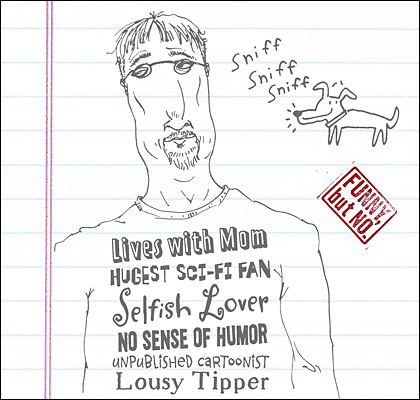 Sniff
Sniff
Sniff
FUNNY
but NO.
Lives with Mom
HUGEST SCI-FI FAN
Selfish Lover
NO SENSE OF HUMOR
UNPUBLISHED CARTOONIST
Lousy Tipper